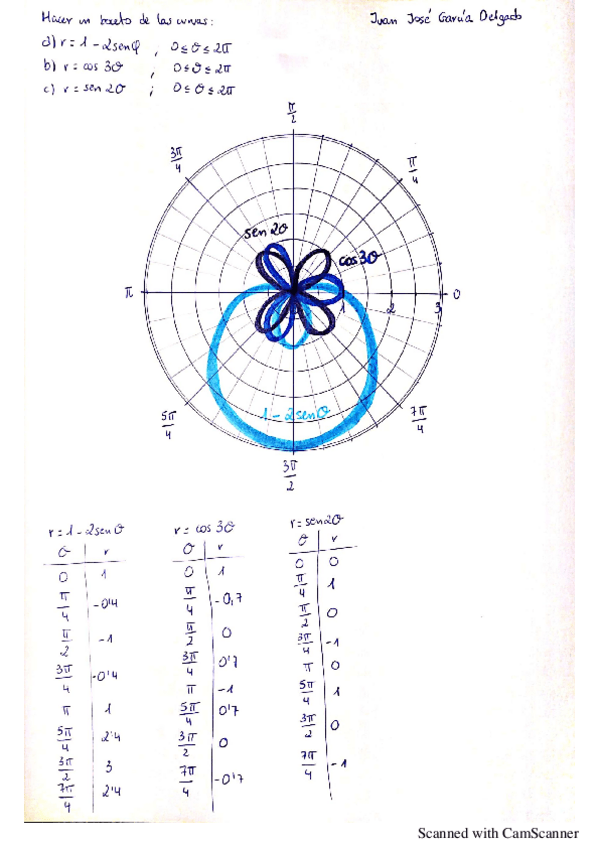 Hacer un boceto de las curvas:
Juan José García Delgado
a) r = 1 - 2senφ , 0 ≤ θ ≤ 2π
b) r = cos 3θ ; 0 ≤ θ ≤ 2π
c) r = sen 2θ ; 0 ≤ θ ≤ 2π
π/2
3π/4
π/4
sen 2θ
cos 3θ
π
0
1
2
3
1 - 2senθ
5π/4
7π/4
3π/2
r = 1 - 2senθ
θ r
0 1
π/4 -0'4
π/2 -1
3π/4 -0'4
π 1
5π/4 2'4
3π/2 3
7π/4 2'4
r = cos 3θ
θ r
0 1
π/4 -0,7
π/2 0
3π/4 0'7
π -1
5π/4 0'7
3π/2 0
7π/4 -0'7
r = sen2θ
θ r
0 0
π/4 1
π/2 0
3π/4 -1
π 0
5π/4 1
3π/2 0
7π/4 -1
Scanned with CamScanner